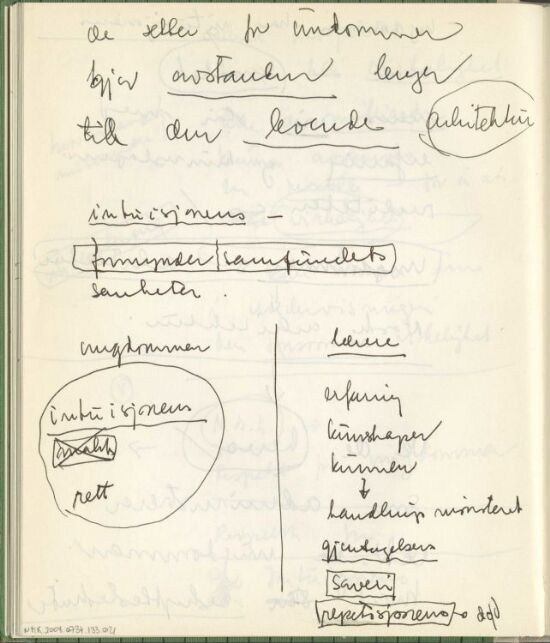 de seller for ungdommen
gjør avstanden lenger
til den levende arkitektur
intuisjonens –
formynder|samfundets
sanheter.
ungdommen
intuisjonens
rett
lærere
erfaring
kunskaper
kunnen
↓
handlings mønsteret
gjentagelsens
repetisjonens → død
NMK.2005.0734.133.021